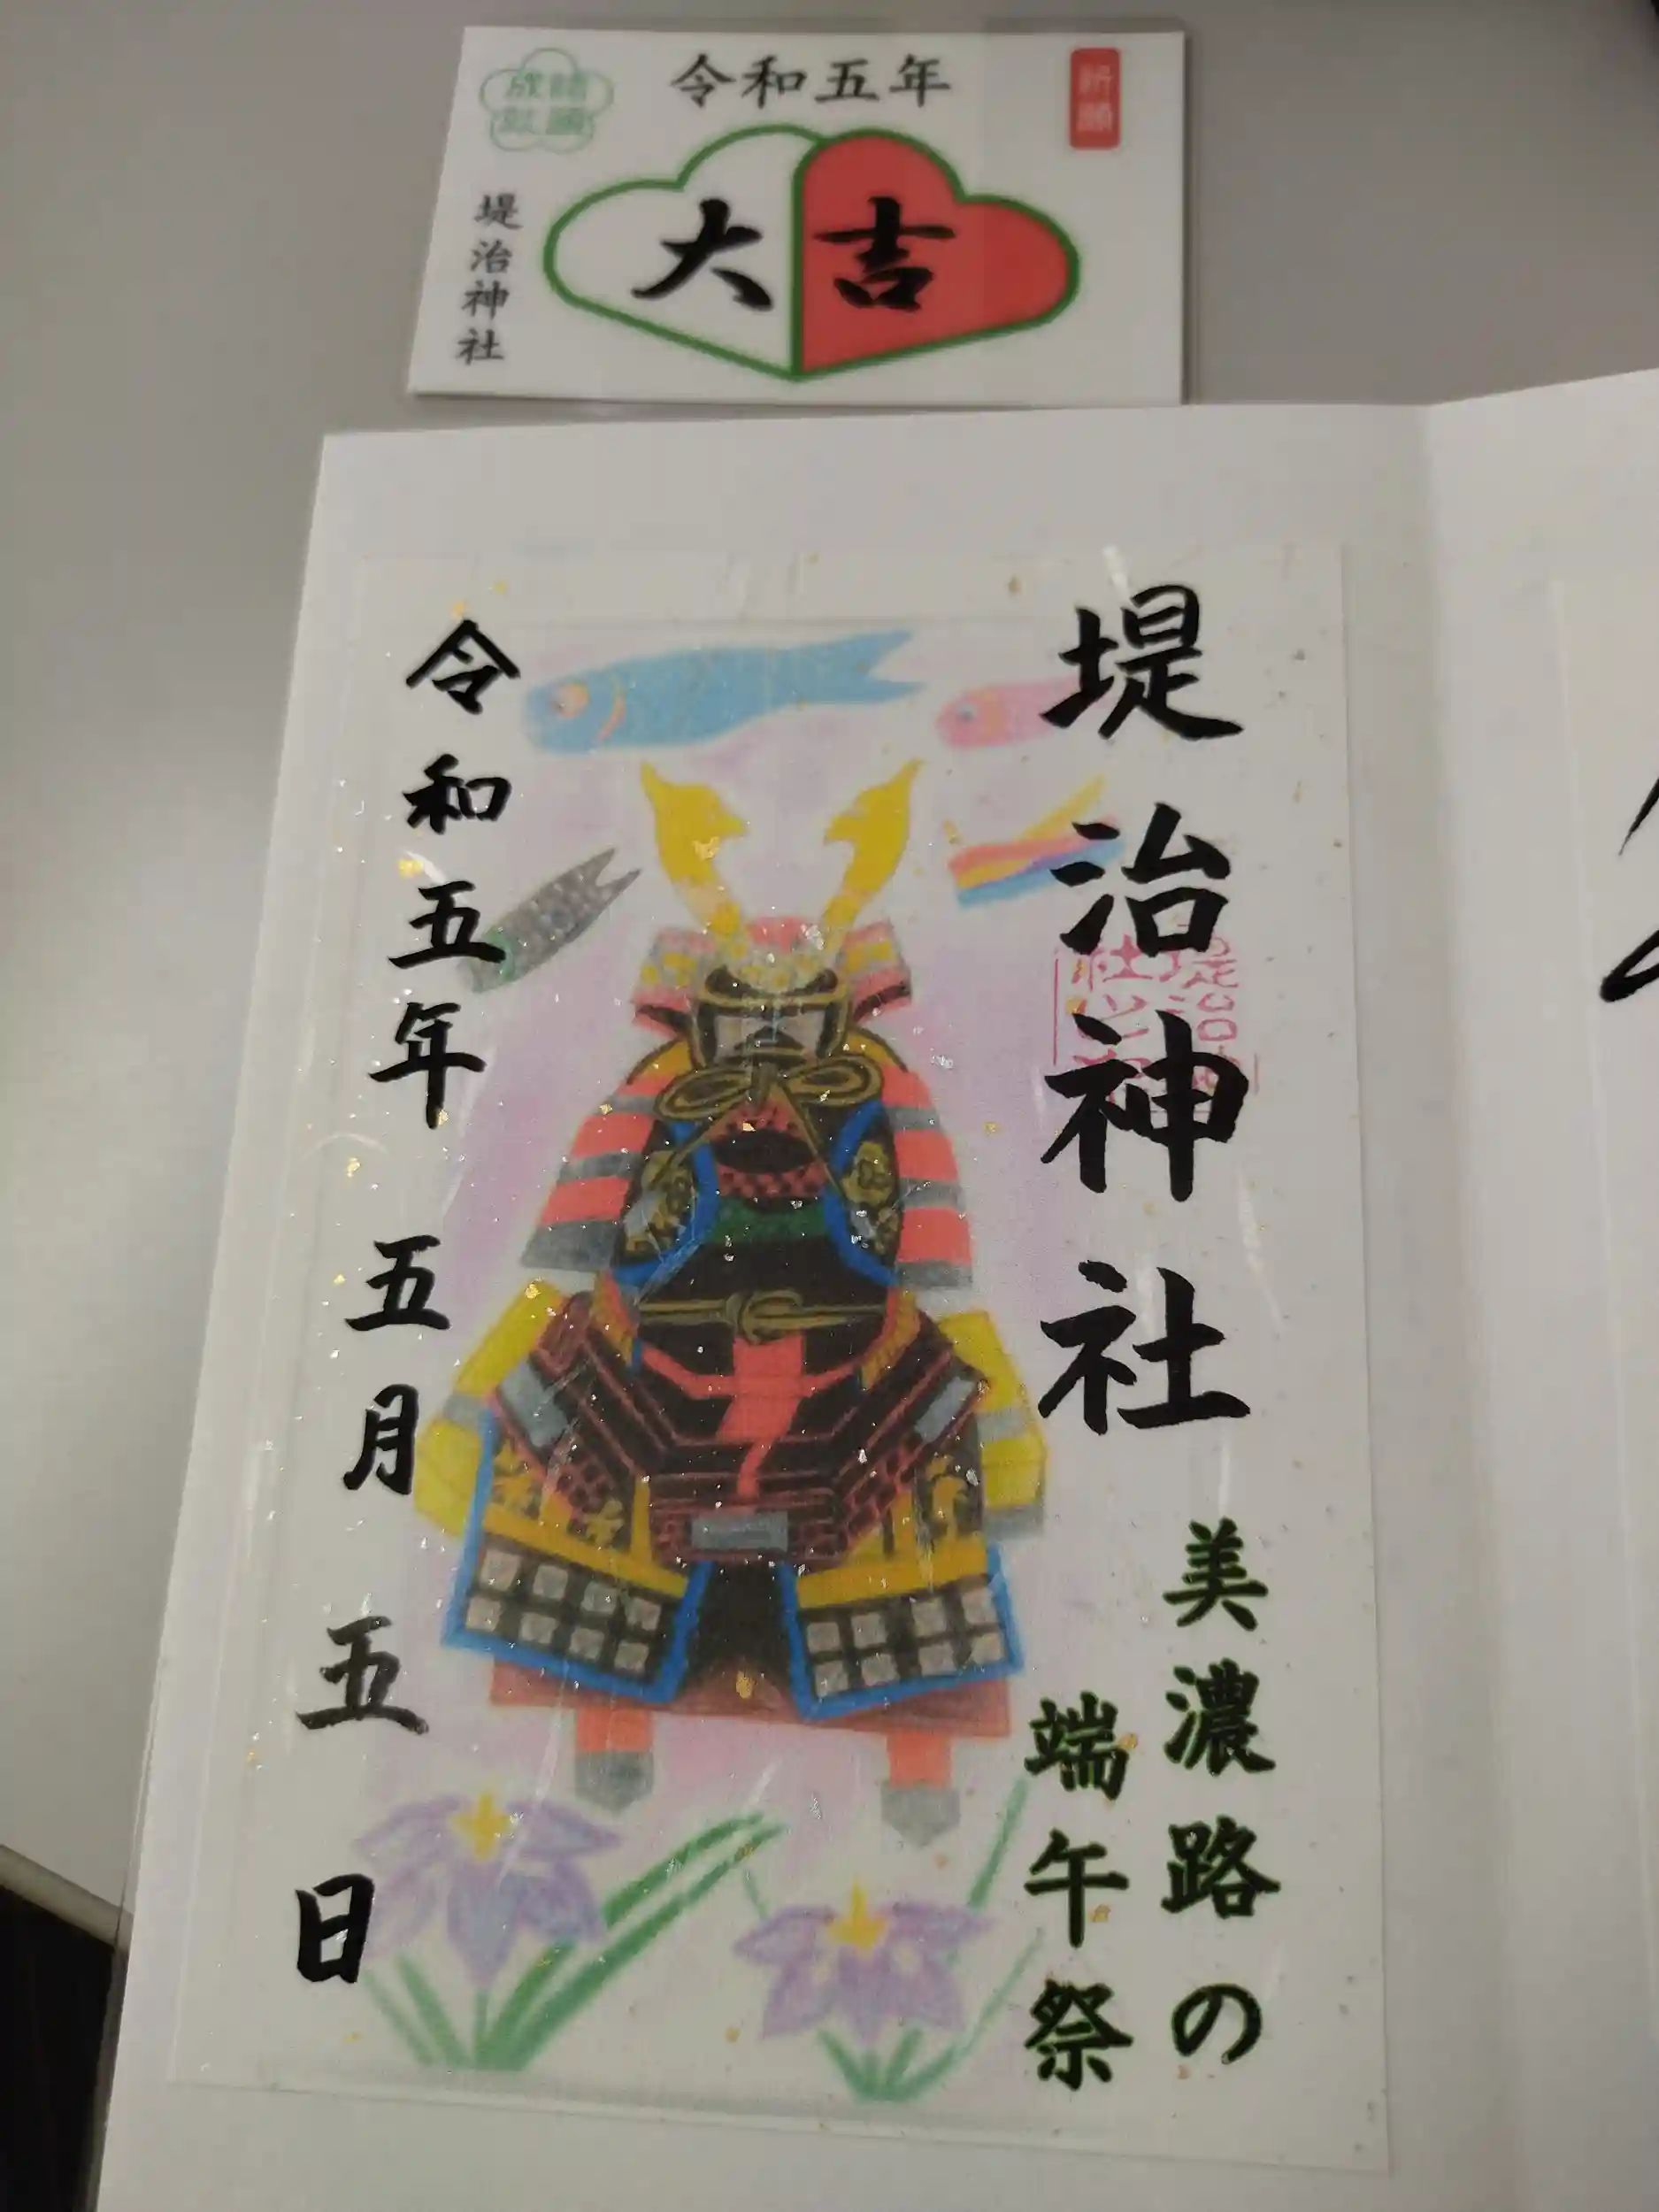 令和五年
祈願
大吉
堤治神社
堤治神社
美濃路の
端午祭
令和五年 五月 五日